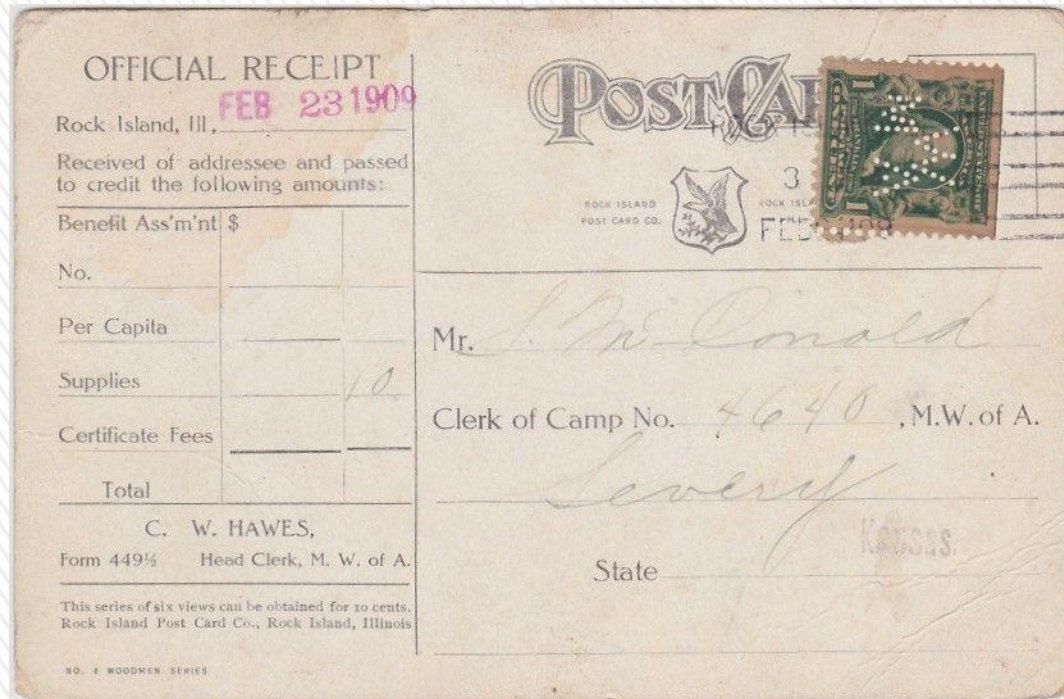 OFFICIAL RECEIPT
FEB 23 1909
Rock Island, Ill,
Received of addressee and passed
to credit the following amounts:
Benefit Ass'm'nt $
No.
Per Capita
Supplies 10
Certificate Fees
Total
C. W. HAWES,
Form 449½ Head Clerk, M. W. of A.
This series of six views can be obtained for 10 cents.
Rock Island Post Card Co., Rock Island, Illinois
NO. 4 WOODMEN SERIES
POST CA
ROCK IS
3
ROCK ISLAND
POST CARD CO.
ROCK ISL
FEB
1 1
Mr. S. McDonald
Clerk of Camp No. 4640, M.W. of A.
Severy
Kansas.
State